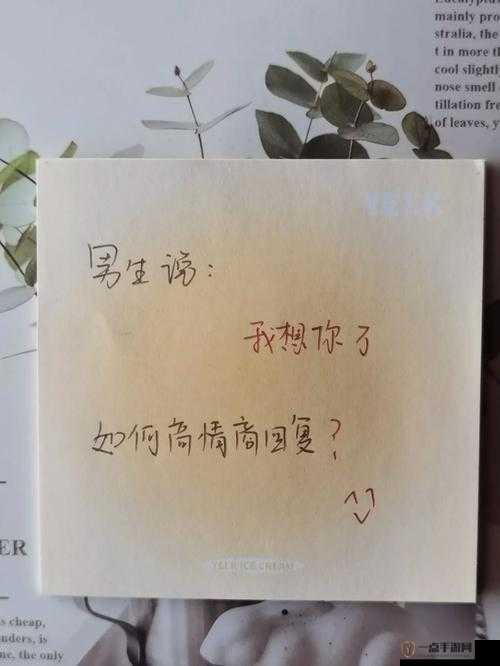 mainly pro
stralia, the
t in more th
cool slightl
nose smell
tillation fre
of leaves, y
男生说：
我想你了
如何高情商回复？
YEER ICE CREAM
ER
s cheap,
nders, is
ne, the only
一点手游网